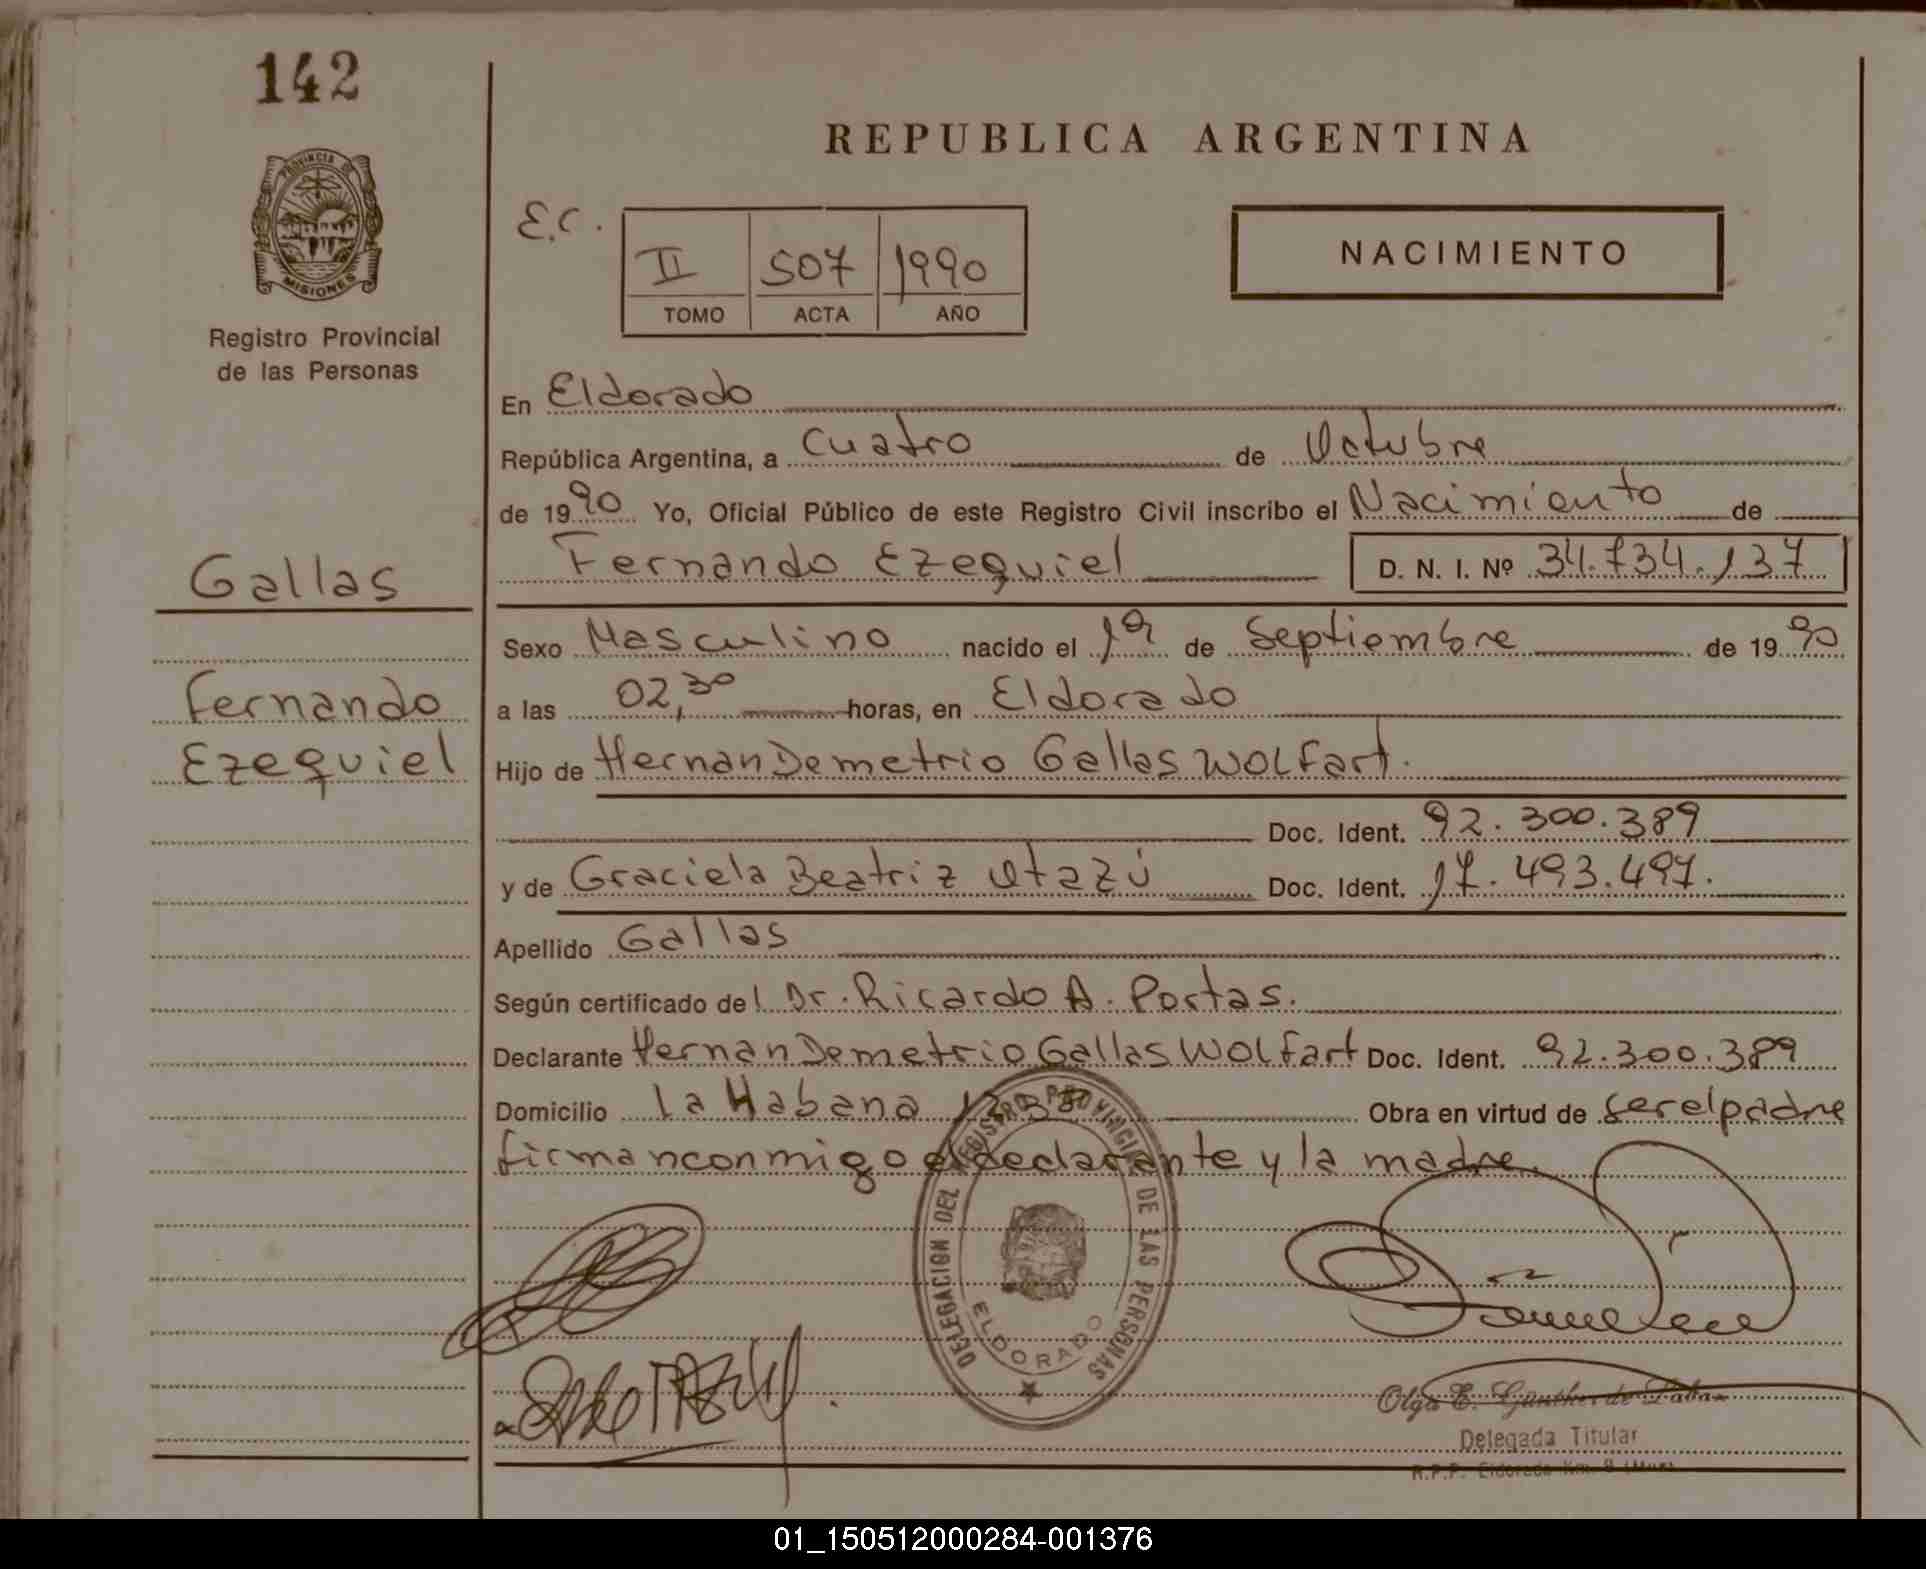 142
PROVINCIA DE
MISIONES
Registro Provincial
de las Personas
Gallas
Fernando
Ezequiel
REPUBLICA ARGENTINA
E.C.
II 507 1990
TOMO ACTA AÑO
NACIMIENTO
En Eldorado
República Argentina, a Cuatro de Octubre
de 1990 Yo, Oficial Público de este Registro Civil inscribo el Nacimiento de
Fernando Ezequiel D. N. I. Nº 34.734.137
Sexo Masculino nacido el 1º de Septiembre de 1990
a las 02,30 horas, en Eldorado
Hijo de Hernan Demetrio Gallas Wolfart.
Doc. Ident. 92.300.389
y de Graciela Beatriz Otazú Doc. Ident. 17.493.497.
Apellido Gallas
Según certificado del Dr. Ricardo A. Portas.
Declarante Hernan Demetrio Gallas Wolfart Doc. Ident. 92.300.389
Domicilio La Habana Obra en virtud de ser el padre
firman conmigo el declarante y la madre.
DELEGACION DEL REGISTRO PROVINCIAL DE LAS PERSONAS
ELDORADO
Olga E. Gunther de
Delegada Titular
R.P.P. Eldorado Km. 9
01_150512000284-001376